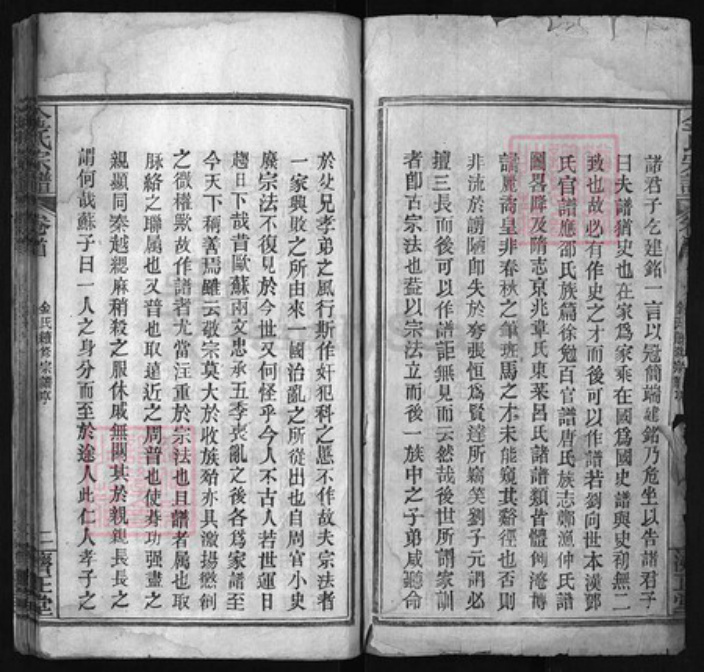 諸君子乞建銘一言以冠簡端建銘乃危坐以告諸君子
曰夫譜猶史也在家爲家乘在國爲國史譜與史初無二
致也故必有作史之才而後可以作譜若劉向世本漢鄧
氏官譜應邵氏族篇徐勉百官譜唐氏族志鄭漁仲氏譜
圖畧降及隋志京兆韋氏東萊呂氏諸譜類皆體例淹博
謨麗喬皇非春秋之筆班馬之才未能窺其谿徑也否則
非流於謭陋卽失於夸張恒爲賢達所竊笑劉子元謂必
擅三長而後可以作譜詎無見而云然哉後世所謂家訓
者卽古宗法也葢以宗法立而後一族中之子弟咸聽命
於父兄孝弟之風行斯作奸犯科之慝不作故夫宗法者
一家興敗之所由來一國治亂之所從出也自周官小史
廢宗法不復見於今世又何怪乎今人不古人若世運日
趨日下哉昔歐蘇兩文忠承五季喪亂之後各爲家譜至
今天下稱善焉雖云敬宗莫大於收族殆亦具激揚懲創
之微權歟故作譜者尤當注重於宗法也且譜者属也取
脉絡之聯属也又普也取遠近之周普也使朞功强畫之
親顯同秦越緦麻稍殺之服休戚無關其於親親長長之
謂何哉蘇子曰一人之身分而至於途人此仁人孝子之
金氏宗譜
卷首
金氏續修宗譜序
二
濟正堂